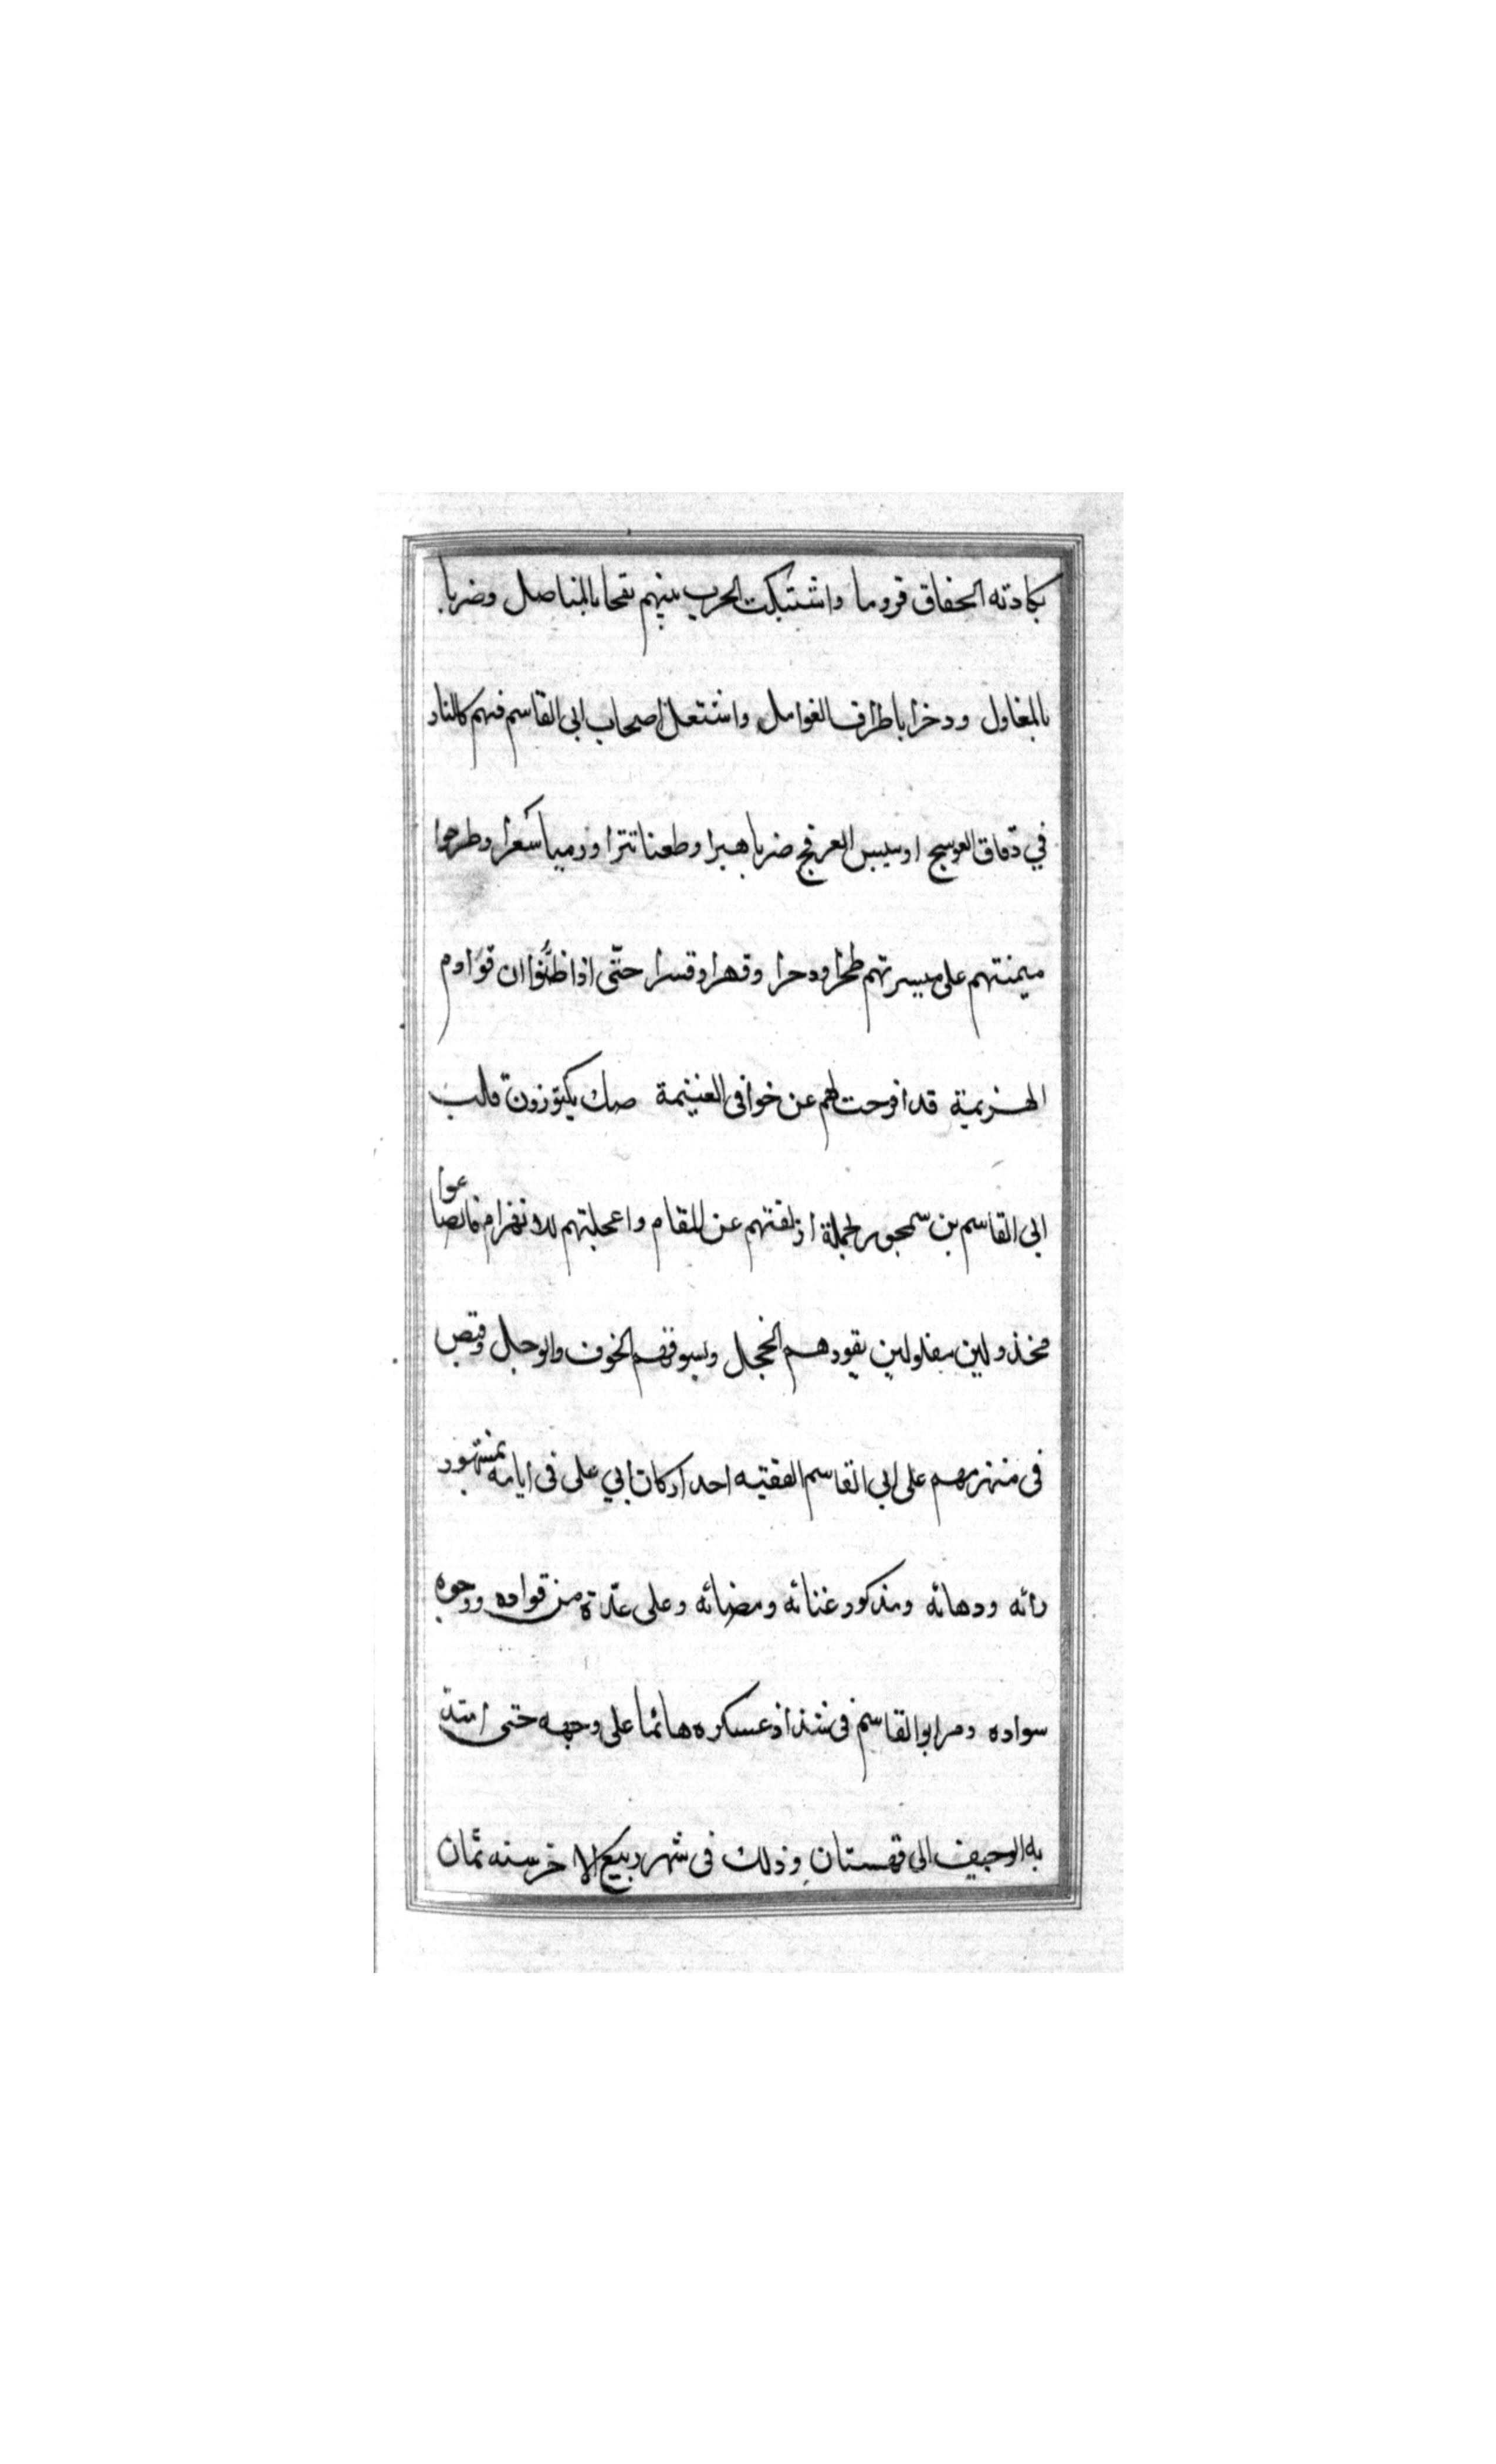 بكادته الحفاق قروما واشتبكت الحرب بينهم نفحا بالمناصل وضربا
بالمغاول ودخرا باطراف الغوامل واشتعل اصحاب ابى القاسم فيهم كالنار
في دقاق العوسج اوسيبس العرفج ضربا هبرا وطعنا نترا ورميا سعرا وطرحوا
ميمنتهم على ميسرتهم طحرا ودحرا وقهرا وقسرا حتّى اذا ظنّوا ان قوادم
الهزيمة قد افرحت لهم عن خوافى الغنيمة صك بكتوزون قلب
ابى القاسم بن سمجور لحملة ازلقتهم عن المقام واعجلتهم للانهزام فانصاعوا
مخذولين مفلولين يقودهم الخجل ويسوقهم الخوف والوجل وقبص
فى منهزمهم على ابى القاسم الفقيه احد اركان ابي على فى ايامه بمشهور
رائه ودهائه ومذكور غنائه ومضائه وعلى عدّة من قواده ووجوه
سواده ومر ابو القاسم فى شذاذ عسكره هائما على وجهه حتى امتدّ
به الوجيف الى قهستان وذلك فى شهر ربيع الاخر سنه ثمان